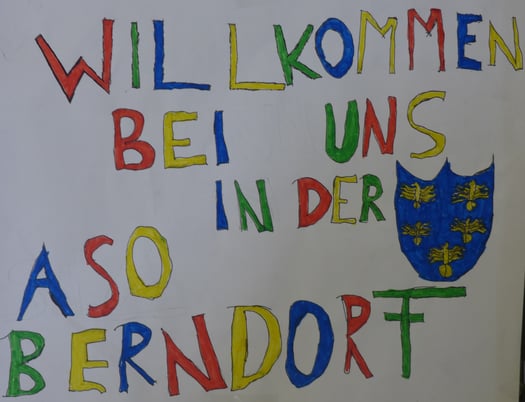 WILLKOMMEN
BEI UNS
IN DER
ASO
BERNDORF